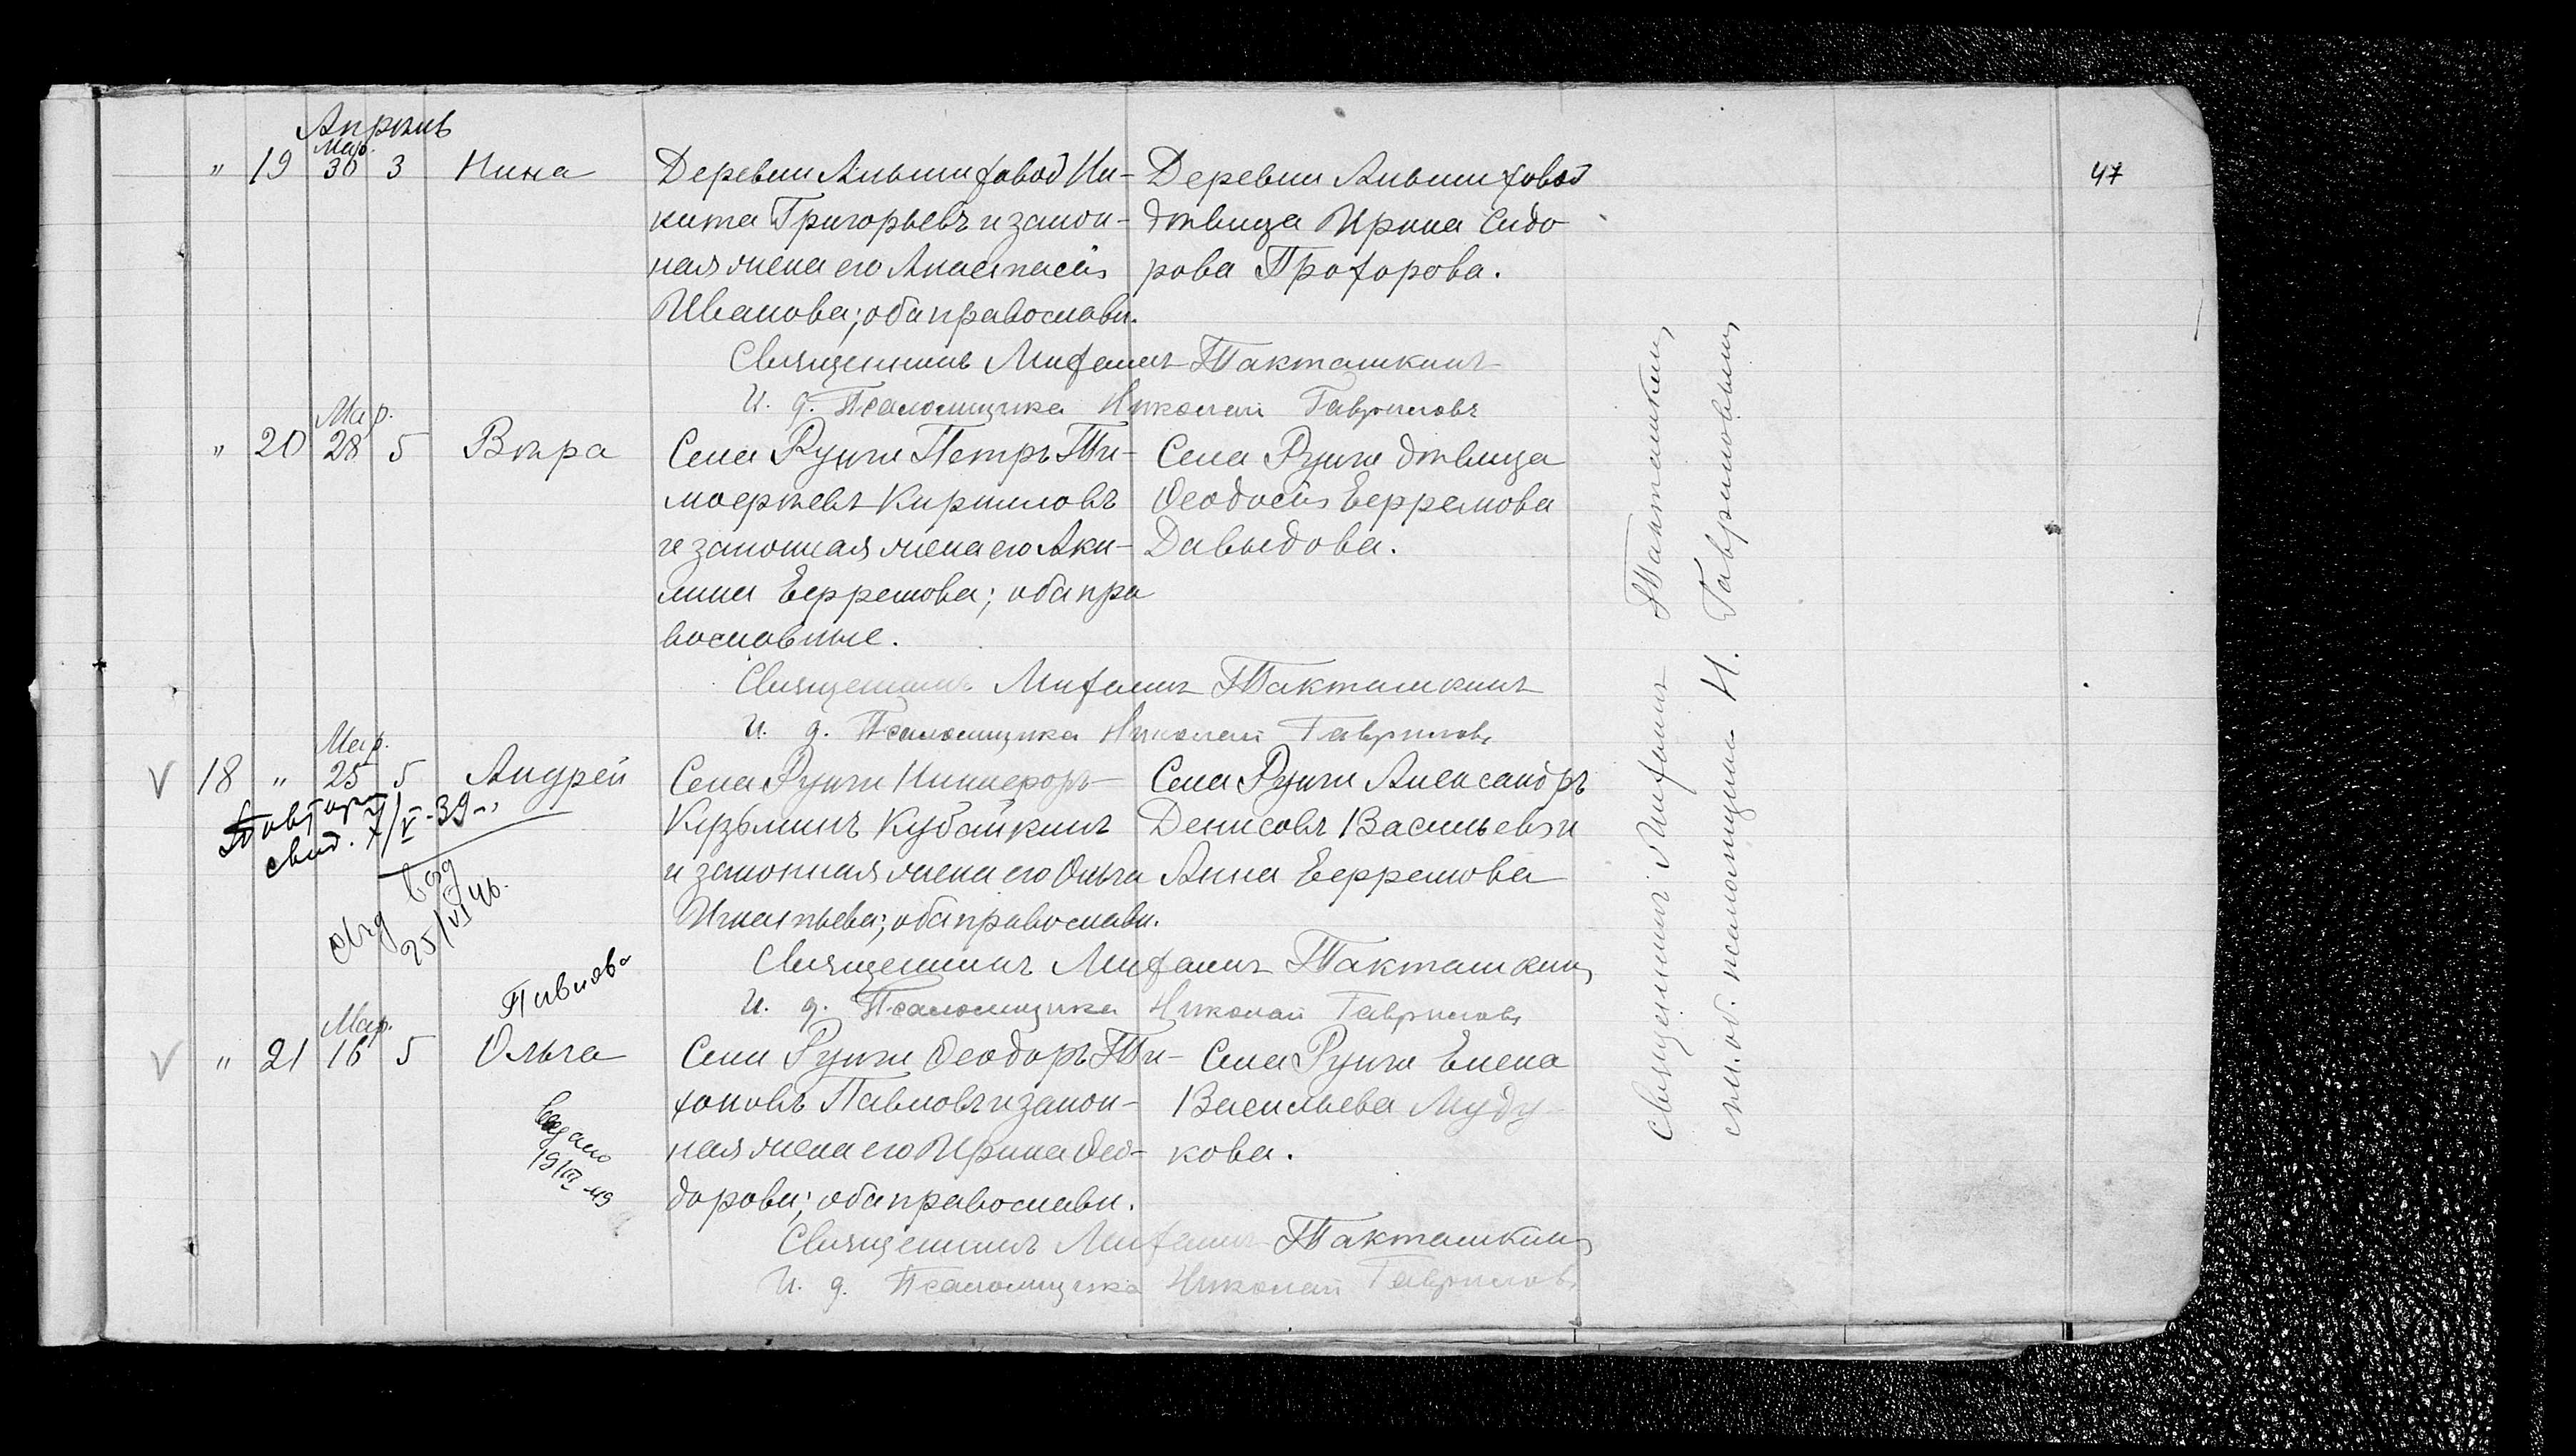 Апрѣль
Мар.
" 19 30 3 Нина
Деревни Альшиховой Ни-
кита Григорьевъ и закон-
ная жена его Анастасія
Иванова; оба православн.
Деревни Альшиховой
дѣвица Ирина Сидо
рова Прохорова.
Священникъ Митрофанъ Такташкинъ
И. д. Псаломщика Николай Гавриловъ
47
Мар.
" 20 28 5 Вѣра
Села Рунги Петръ Ти-
моѳеевъ Кирилловъ
и законная жена его Аки-
лина Ефремова; оба пра
вославные.
Села Рунги дѣвица
Ѳеодосія Ефремова
Давыдова.
Священникъ Такташкинъ
И. д. Псаломщика Николай Гавриловъ
Мар.
V 18 " 25 5 Андрей
Повторн
свид. 7/V-39-
Свид
25/VI 46.
Села Рунги Никифоръ
Кузьминъ Кубайкинъ
и законная жена его Ольга
Игнатьева; оба православн.
Села Рунги Александръ
Денисовъ Васильевъ и
Анна Ефремова
Священникъ Такташкинъ
И. д. Псаломщика Николай Гавриловъ
Павлова
Мар.
V " 21 16 5 Ольга
Выдано
19/III-49
Села Рунги Ѳеодоръ Ти-
хоновъ Павловъ и закон-
ная жена его Ирина Ѳео-
дорова; оба православн.
Села Рунги Елена
Васильева Муду
кова.
Священникъ Такташкинъ
И. д. Псаломщика Николай Гавриловъ
Священникъ Такташкинъ
псаломщика Н. Гавриловъ